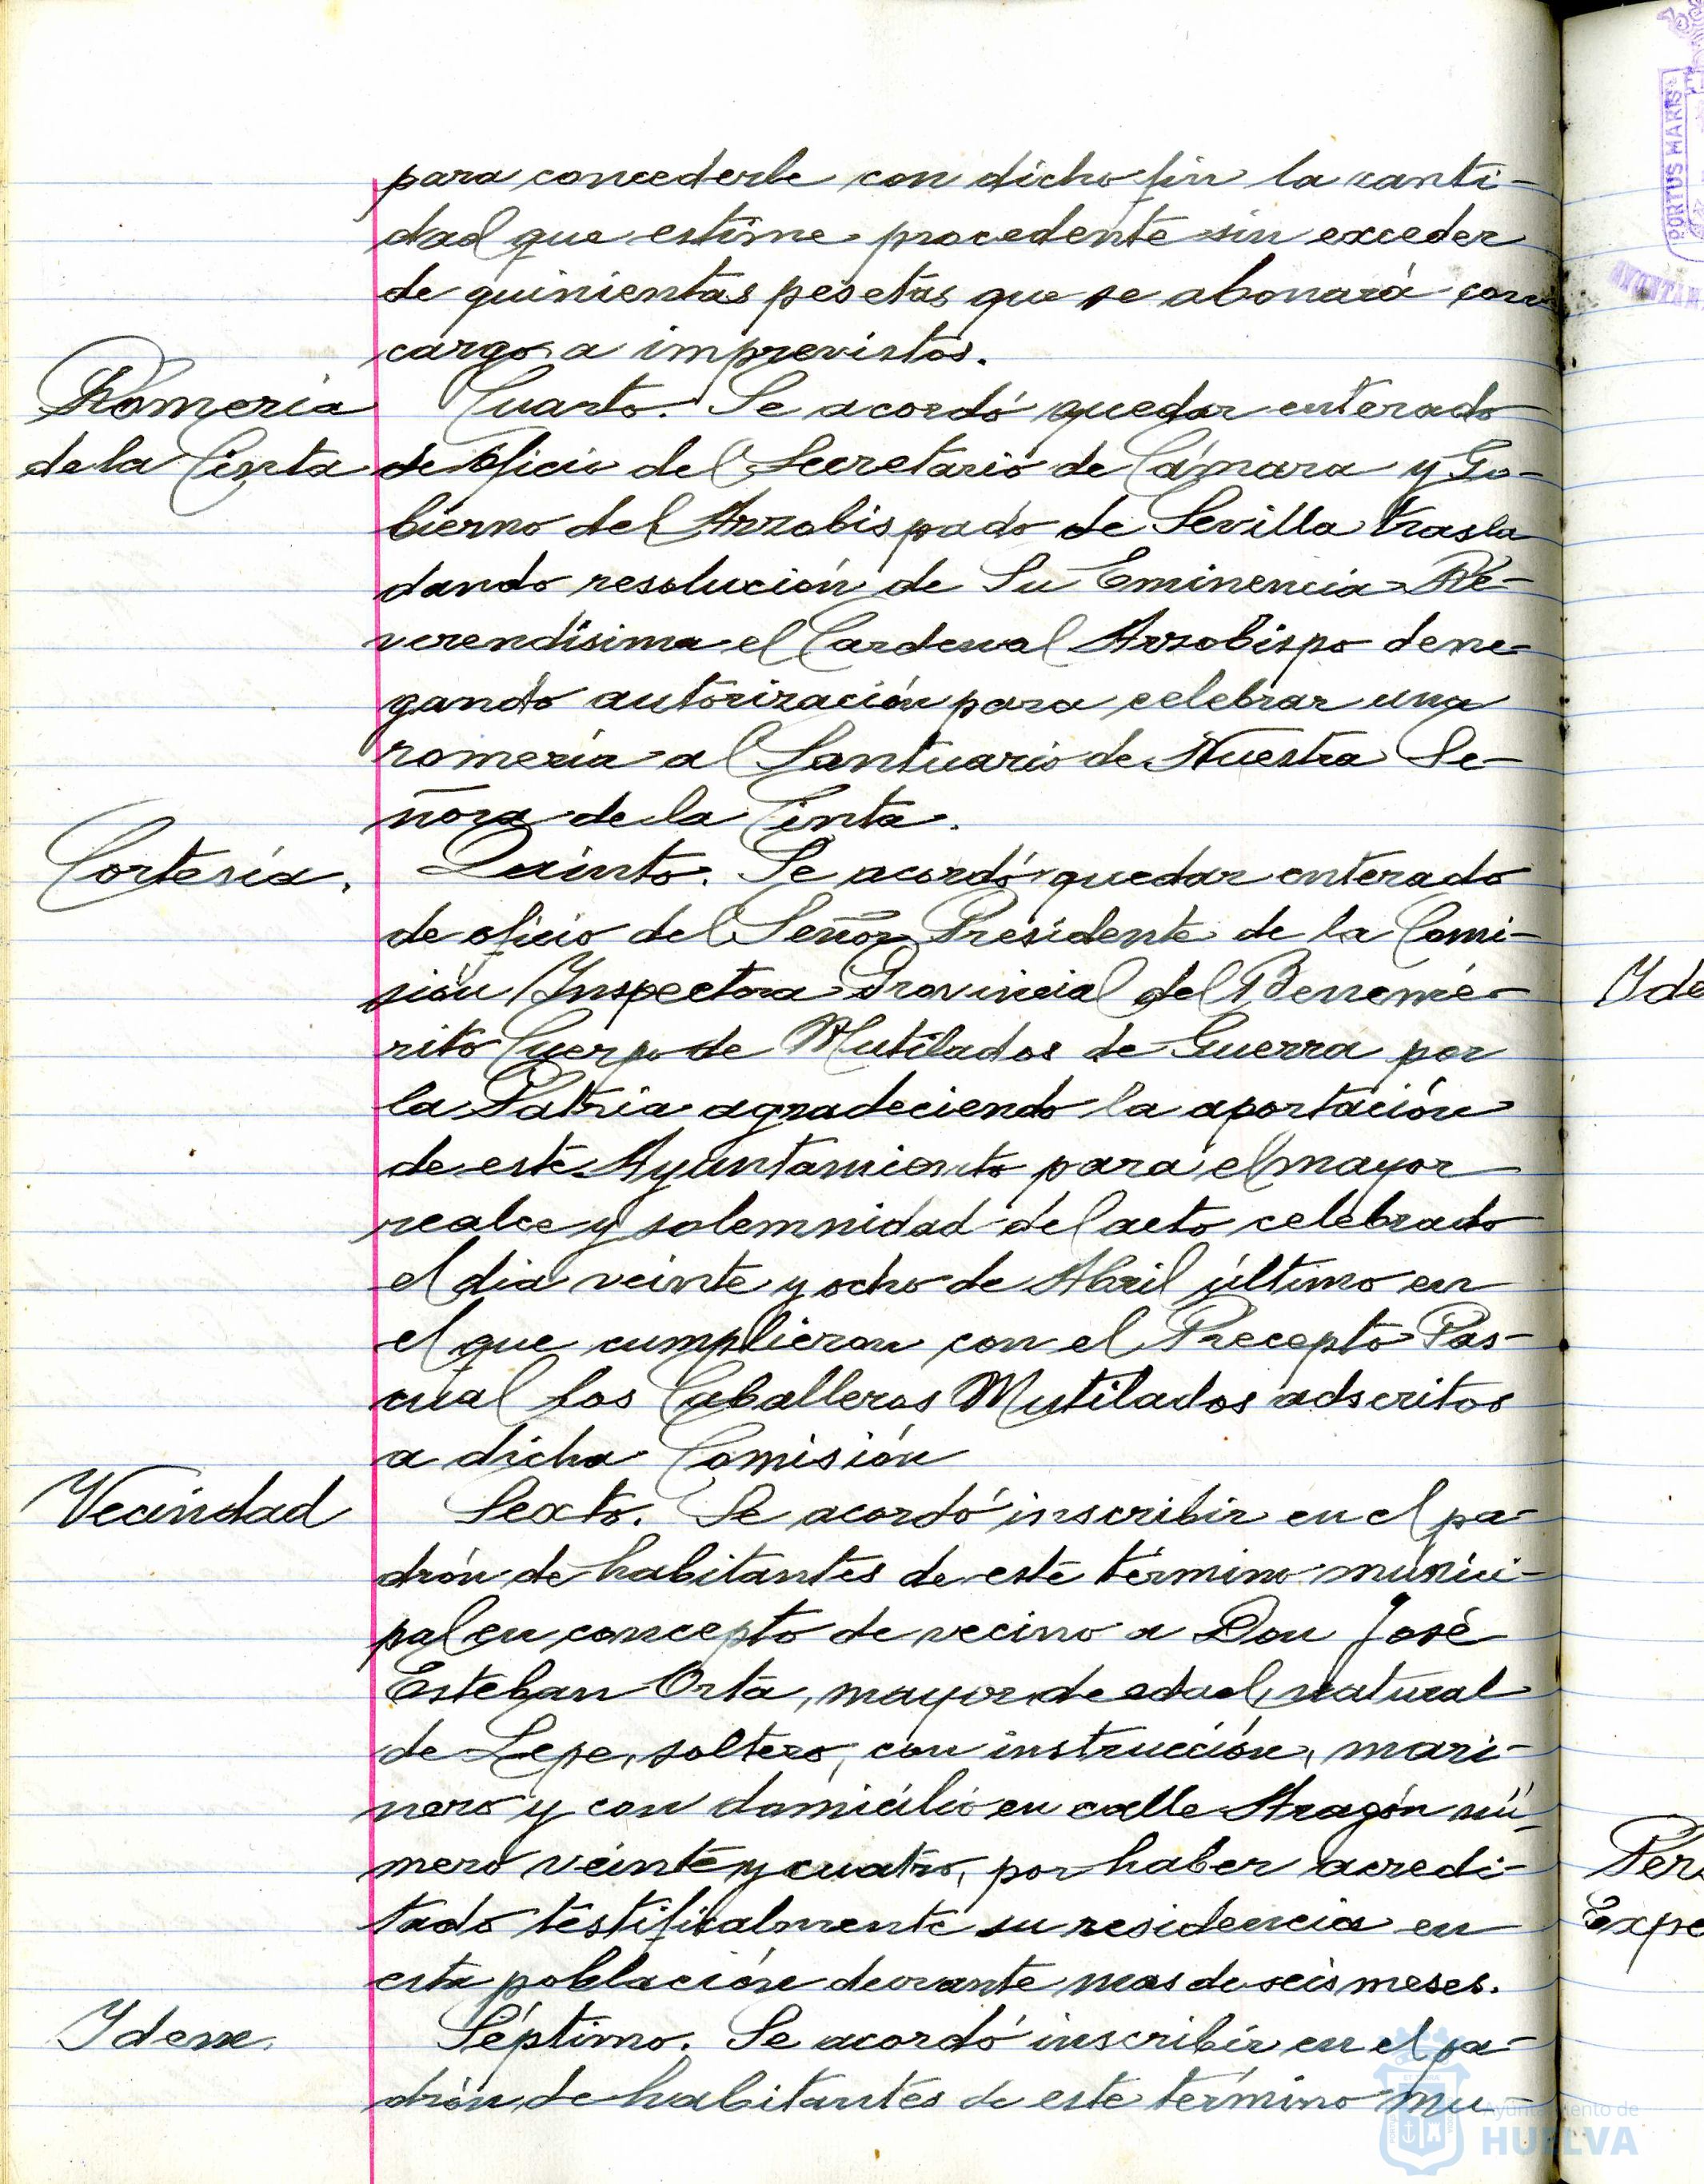 para concederle con dicho fin la canti-
dad que estime procedente sin exceder
de quinientas pesetas que se abonará con
cargo a imprevistos.
Romería
de la Cinta
Cuarto. Se acordó quedar enterado
de oficio del Secretario de Cámara y Go-
bierno del Arzobispado de Sevilla trasla
dando resolución de Su Eminencia Re-
verendísima el Cardenal Arzobispo dene-
gando autorización para celebrar una
romería al Santuario de Nuestra Se-
ñora de la Cinta.
Cortesía.
Quinto. Se acordó quedar enterado
de oficio del Señor Presidente de la Comi-
sión Inspectora Provincial del Benemé-
rito Cuerpo de Mutilados de Guerra por
la Patria agradeciendo la aportación
de este Ayuntamiento para el mayor
realce y solemnidad del acto celebrado
el dia veinte y ocho de Abril último en
el que cumplieron con el Precepto Pas-
cual los Caballeros Mutilados adscritos
a dicha Comisión
Vecindad
Sexto. Se acordó inscribir en el pa-
drón de habitantes de este término munici-
pal en concepto de vecino a Don José
Esteban Orta, mayor de edad, natural
de Lepe, soltero, con instrucción, mari-
nero y con domicilio en calle Aragón nú-
mero veinte y cuatro, por haber acredi-
tado testifical­mente su residencia en
esta población durante mas de seis meses.
Idem.
Séptimo. Se acordó inscribir en el pa-
drón de habitantes de este término mu-
PORTUS MARIS
Ide
Per
Expe
Ayuntamiento de
HUELVA